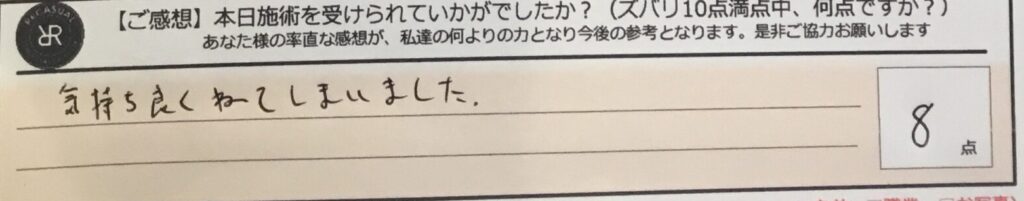 【ご感想】本日施術を受けられていかがでしたか？（ズバリ10点満点中、何点ですか？）
あなた様の率直な感想が、私達の何よりの力となり今後の参考となります。是非ご協力お願いします
気持ち良くねてしまいました.
8点